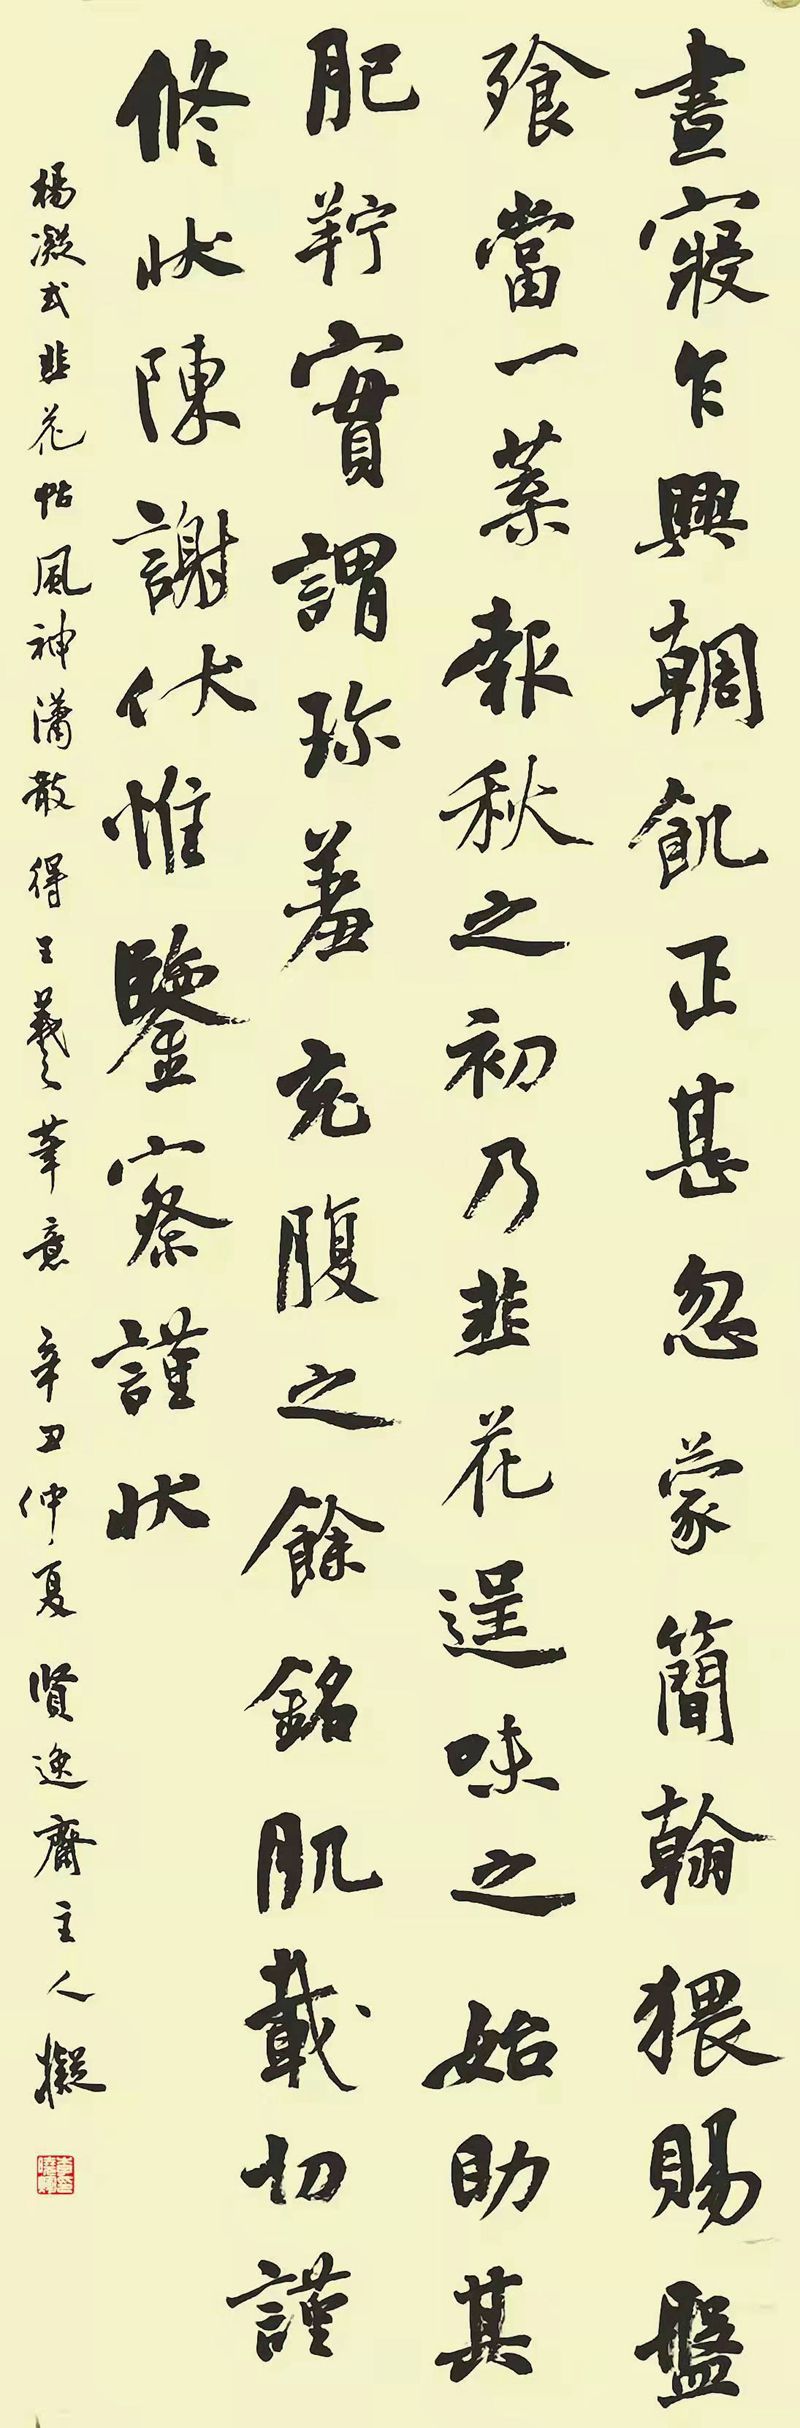 晝寢乍興輖飢正甚忽蒙簡翰猥賜盤
飱當一葉報秋之初乃韭花逞味之始助其
肥羜實謂珎羞充腹之餘銘肌載切謹
修狀陳謝伏惟鑒察謹狀
楊凝式韭花帖風神瀟散得王羲之筆意 辛丑仲夏賢逸齋主人擬